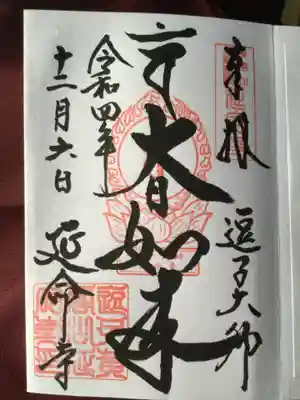 奉拝
逗子大師
大日如来
令和四年
十二月六日
延命寺